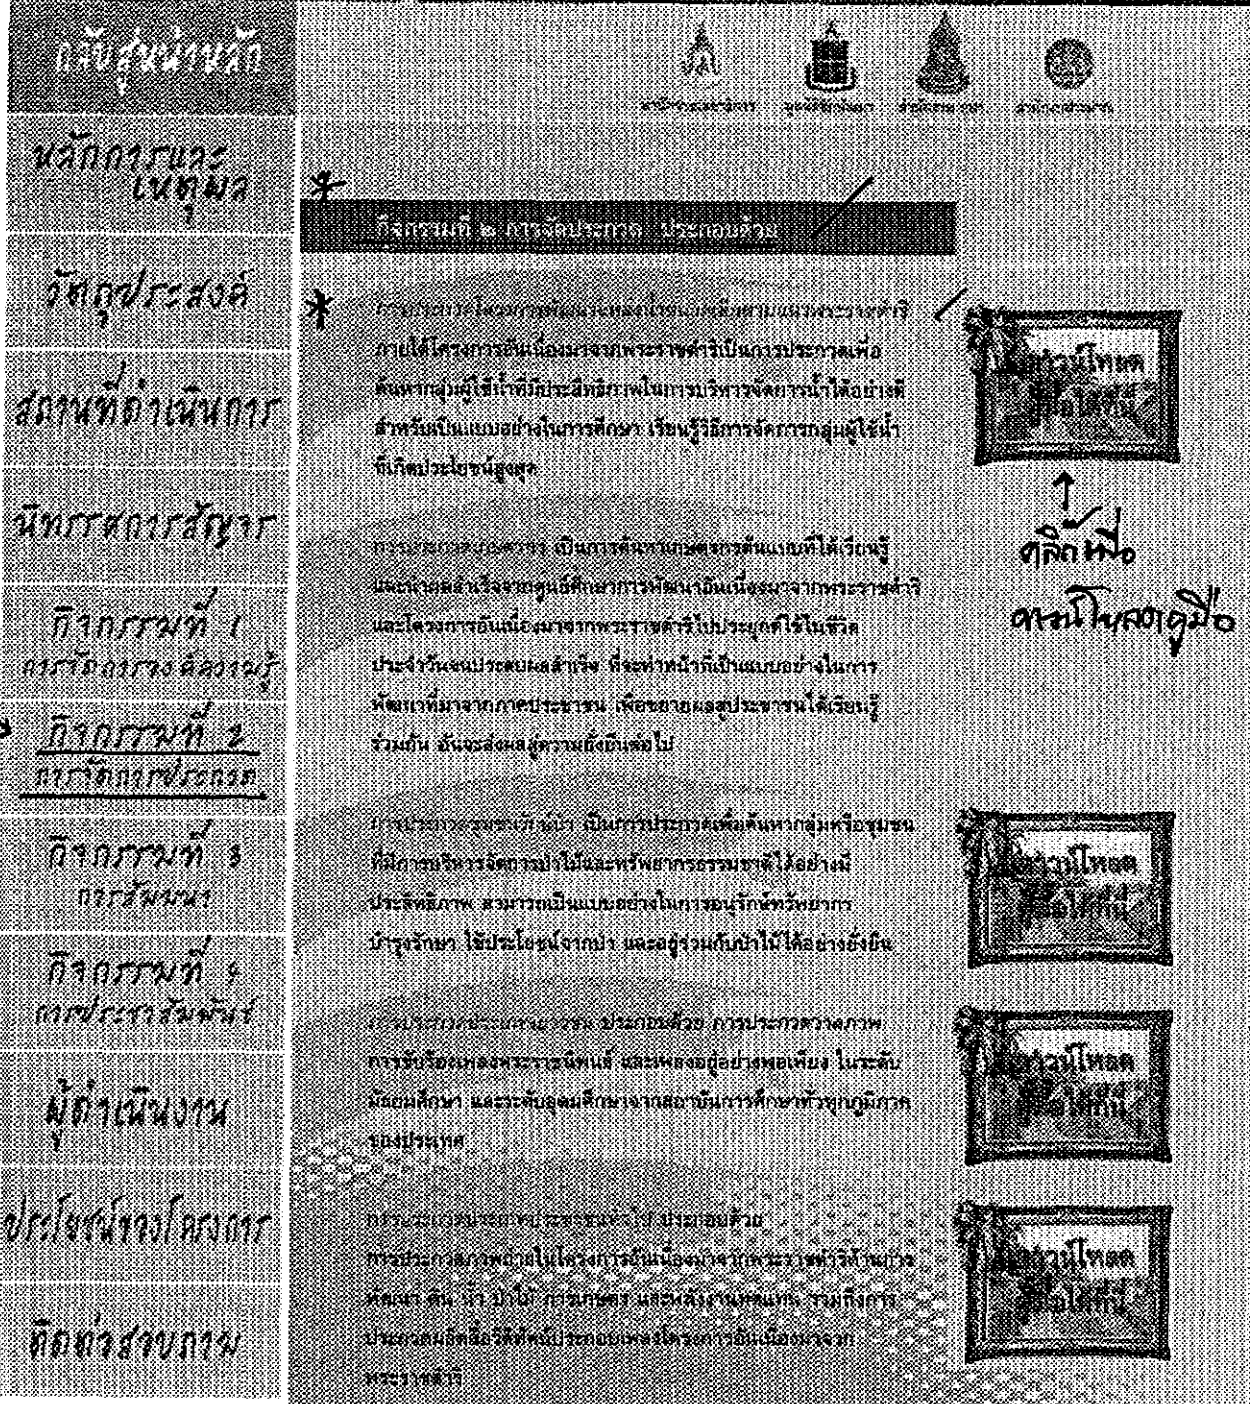 กลับสู่หน้าหลัก
หลักการและ
เหตุผล
วัตถุประสงค์
สถานที่ดำเนินการ
นิทรรศการสัญจร
กิจกรรมที่ 1
การจัดการองค์ความรู้
กิจกรรมที่ 2
การจัดการประกวด
กิจกรรมที่ 3
การสัมมนา
กิจกรรมที่ 4
การประชาสัมพันธ์
ผู้ดำเนินงาน
ประโยชน์ของโครงการ
ติดต่อสอบถาม
กิจกรรมที่ ๒ การจัดประกวด ประกอบด้วย
ภายใต้โครงการอันเนื่องมาจากพระราชดำริเป็นการประกวดเพื่อ
ค้นหากลุ่มผู้ใช้น้ำที่มีประสิทธิภาพในการบริหารจัดการน้ำได้อย่างดี
สำหรับเป็นแบบอย่างในการศึกษา เรียนรู้วิธีการจัดการกลุ่มผู้ใช้น้ำ
ที่เกิดประโยชน์สูงสุด
ดาวน์โหลด
คู่มือได้ที่นี่
คลิ๊กเพื่อ
ดาวน์โหลดคู่มือ
การประกวดเกษตรกร เป็นการค้นหาเกษตรกรต้นแบบที่ได้เรียนรู้
และนำผลสำเร็จจากศูนย์ศึกษาการพัฒนาอันเนื่องมาจากพระราชดำริ
และโครงการอันเนื่องมาจากพระราชดำริไปประยุกต์ใช้ในชีวิต
ประจำวันจนประสบผลสำเร็จ ที่จะทำหน้าที่เป็นแบบอย่างในการ
พัฒนาที่มาจากภาคประชาชน เพื่อขยายผลสู่ประชาชนได้เรียนรู้
ร่วมกัน อันจะส่งผลสู่ความยั่งยืนต่อไป
เป็นการประกวดเพื่อค้นหากลุ่มหรือชุมชน
ที่มีการบริหารจัดการป่าไม้และทรัพยากรธรรมชาติได้อย่างมี
ประสิทธิภาพ สามารถเป็นแบบอย่างในการอนุรักษ์ทรัพยากร
บำรุงรักษา ใช้ประโยชน์จากป่า และอยู่ร่วมกับป่าไม้ได้อย่างยั่งยืน
ดาวน์โหลด
คู่มือได้ที่นี่
การประกวดประเภทเยาวชน ประกอบด้วย การประกวดวาดภาพ
การขับร้องเพลงพระราชนิพนธ์ และเพลงอยู่อย่างพอเพียง ในระดับ
มัธยมศึกษา และระดับอุดมศึกษาจากสถาบันการศึกษาทั่วทุกภูมิภาค
ของประเทศ
ดาวน์โหลด
คู่มือได้ที่นี่
การประกวดประเภทประชาชนทั่วไป ประกอบด้วย
การประกวดภาพถ่ายในโครงการอันเนื่องมาจากพระราชดำริด้านการ
พัฒนา ดิน น้ำ ป่าไม้ การเกษตร และพลังงานทดแทน รวมถึงการ
ประกวดผลิตสื่อวีดิทัศน์ประกอบเพลงโครงการอันเนื่องมาจาก
พระราชดำริ
ดาวน์โหลด
คู่มือได้ที่นี่